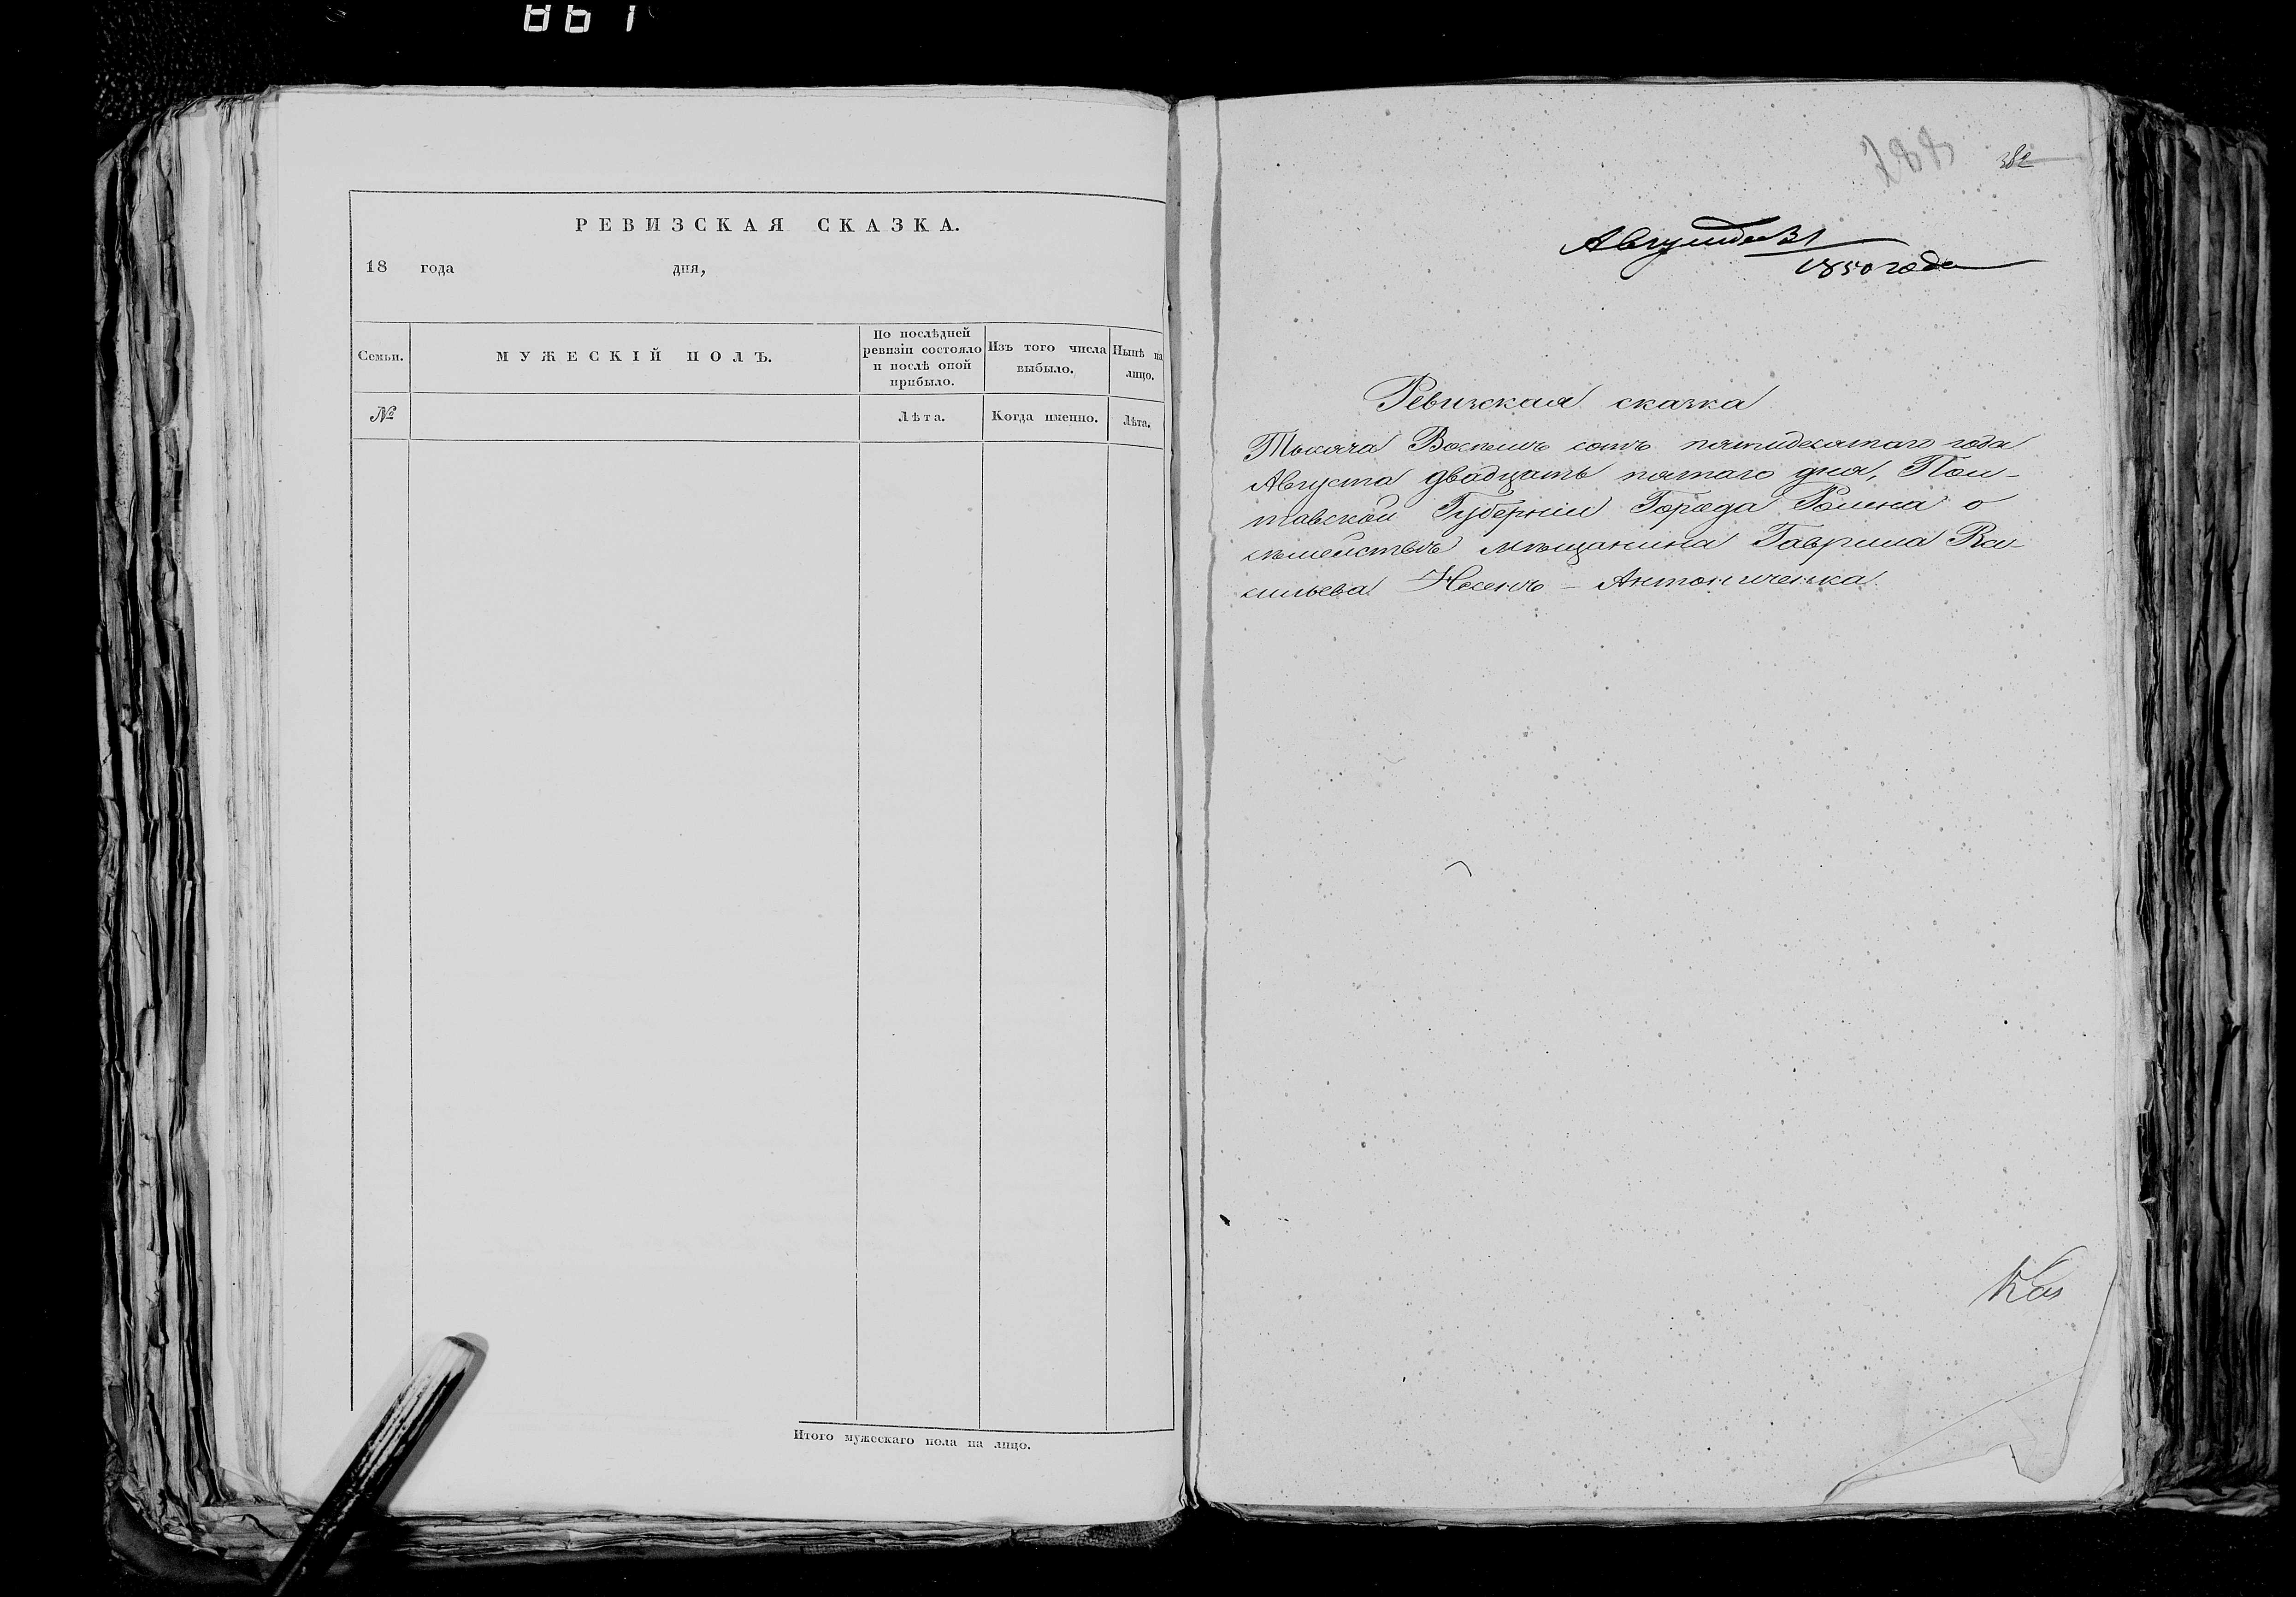 867
РЕВИЗСКАЯ СКАЗКА.
18 года дня,
Семьи.
МУЖЕСКІЙ ПОЛЪ.
По послѣдней ревизіи состояло и послѣ оной прибыло.
Изъ того числа выбыло.
Нынѣ на лицо.
№
Лѣта.
Когда именно.
Лѣта.
Итого мужескаго пола на лицо.
288
382
Августа 31
1850 года
Ревизская сказка
Тысяча Восемь сотъ пятидесятаго года
Августа двадцать пятаго дня, Пол-
тавской Губерніи Города Ромна о
семействѣ мѣщанина Гаврила Ва-
сильева Несенъ - Антонченка.